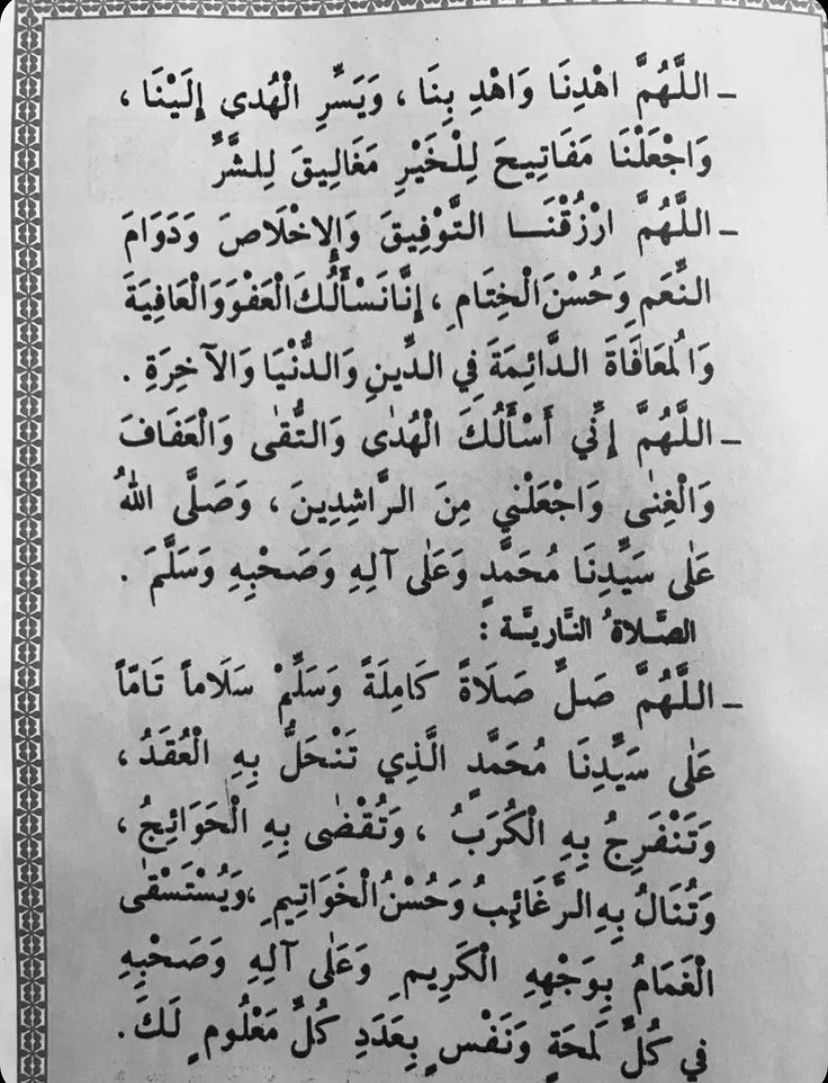 ـ اللَّهُمَّ اهْدِنَا وَاهْدِ بِنَا ، وَيَسِّرِ الْهُدي إِلَيْنَا ،
وَاجْعَلْنَا مَفَاتِيحَ لِلْخَيْرِ مَغَالِيقَ لِلشَّرِّ
ـ اللَّهُمَّ ارْزُقْنَا التَّوْفِيقَ وَالإِخْلَاصَ وَدَوَامَ
النِّعَمِ وَحُسْنَ الْخِتَامِ ، إِنَّا نَسْأَلُكَ الْعَفْوَ وَالْعَافِيَةَ
وَالْمَعَافَاةَ الدَّائِمَةَ فِي الدِّينِ وَالدُّنْيَا وَالآخِرَةِ .
ـ اللَّهُمَّ إِنِّي أَسْأَلُكَ الْهُدٰى وَالتُّقٰى وَالْعَفَافَ
وَالْغِنٰى وَاجْعَلْنِي مِنَ الرَّاشِدِينَ ، وَصَلَّى اللهُ
عَلٰى سَيِّدِنَا مُحَمَّدٍ وَعَلٰى آلِهِ وَصَحْبِهِ وَسَلَّمَ .
الصَّلاةُ النَّارِيَّة :
ـ اللَّهُمَّ صَلِّ صَلَاةً كَامِلَةً وَسَلِّمْ سَلَاماً تَامّاً
عَلٰى سَيِّدِنَا مُحَمَّدٍ الَّذِي تَنْحَلُّ بِهِ الْعُقَدُ ،
وَتَنْفَرِجُ بِهِ الْكُرَبُ ، وَتُقْضٰى بِهِ الْحَوَائِجُ ،
وَتُنَالُ بِهِ الرَّغَائِبُ وَحُسْنُ الْخَوَاتِيمِ ، وَيُسْتَسْقٰى
الْغَمَامُ بِوَجْهِهِ الْكَرِيمِ وَعَلٰى آلِهِ وَصَحْبِهِ
فِي كُلِّ لَمْحَةٍ وَنَفْسٍ بِعَدَدِ كُلِّ مَعْلُومٍ لَكَ .